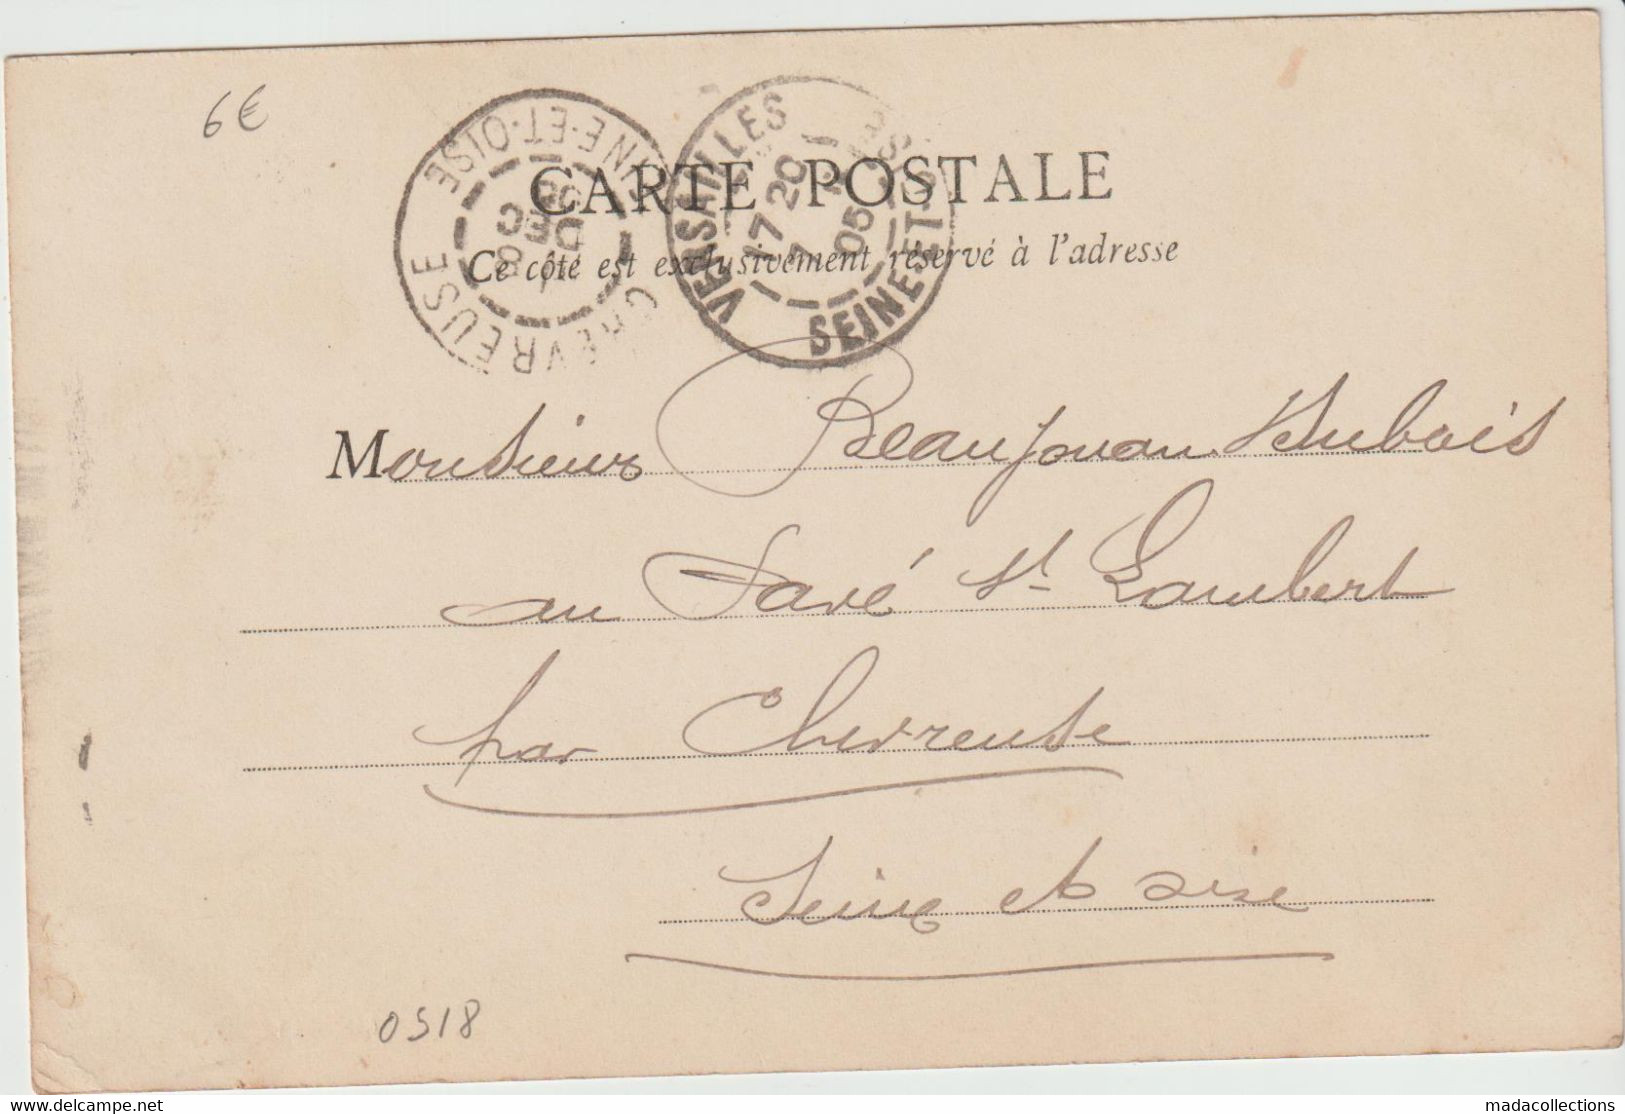 6€
CHEVREUSE SEINE-ET-OISE
DEC
VERSAILLES
17 20
7
05
SEINE-ET-
CARTE POSTALE
Ce côté est exclusivement réservé à l'adresse
Monsieur Beaujouan Dubois
au Pavé St Lambert
par Chevreuse
Seine et oise
0518
madacollections